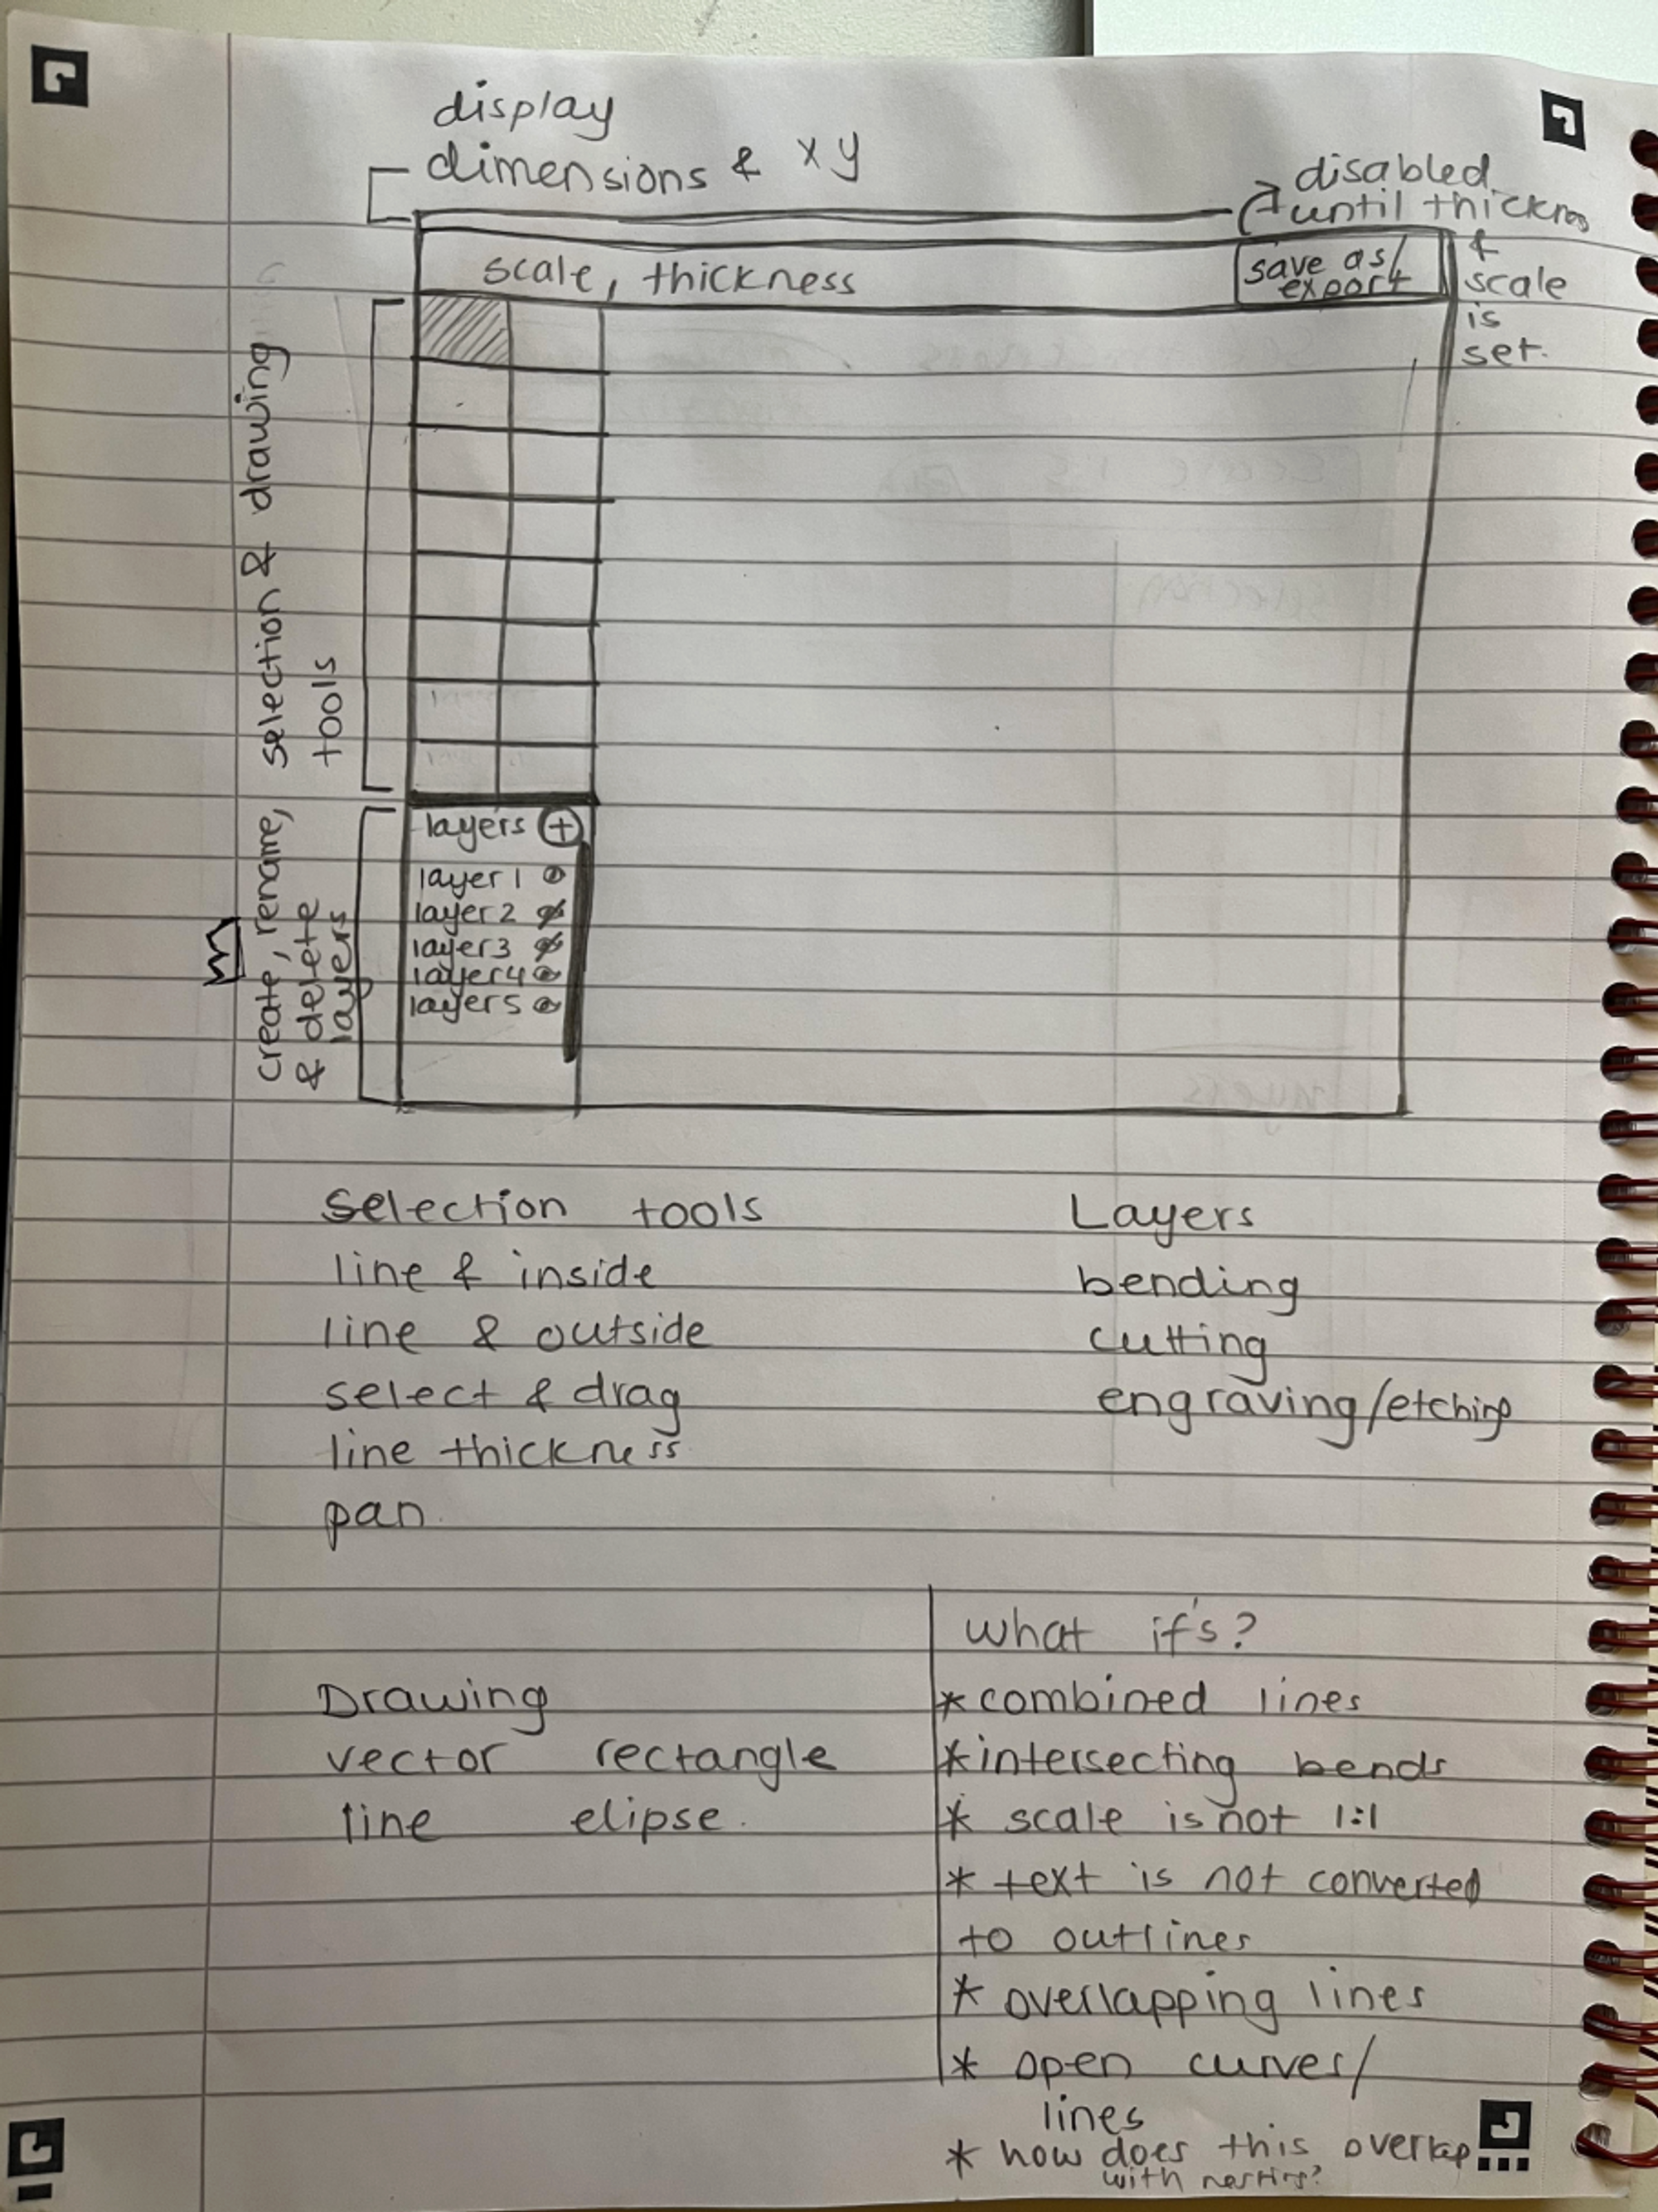 display
dimensions & xy
disabled
until thickness
&
scale
is
set.
scale, thickness
save as/
export
selection & drawing
tools
create, rename,
& delete
layers
layers +
layer 1
layer 2
layer 3
layer 4
layer 5
Selection tools
line & inside
line & outside
select & drag
line thickness
pan.
Layers
bending
cutting
engraving/etching
Drawing
vector rectangle
line elipse.
what if's?
* combined lines
* intersecting bends
* scale is not 1:1
* text is not converted
to outlines
* overlapping lines
* open curves/
lines
* how does this overlap
with nesting?